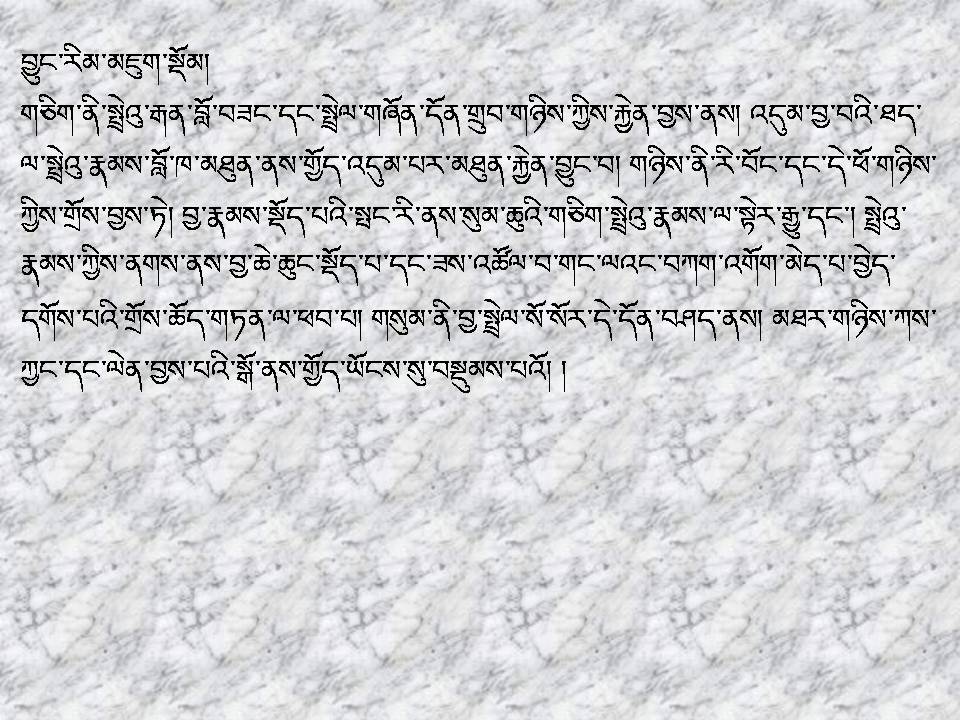 བྱུང་རིམ་མཇུག་སྡོམ།
གཅིག་ནི་སྤྲེའུ་རྒན་བློ་བཟང་དང་སྤྲེལ་གཞོན་དོན་གྲུབ་གཉིས་ཀྱིས་རྐྱེན་བྱས་ནས། འདུམ་བྱ་བའི་ཐད་
ལ་སྤྲེའུ་རྣམས་བློ་ཁ་མཐུན་ནས་གྱོད་འདུམ་པར་མཐུན་རྐྱེན་བྱུང་བ། གཉིས་ནི་རི་བོང་དང་དེ་ཕོ་གཉིས་
ཀྱིས་གྲོས་བྱས་ཏེ། བྱ་རྣམས་སྡོད་པའི་སྤང་རི་ནས་སུམ་ཆུའི་གཅིག་སྤྲེའུ་རྣམས་ལ་སྟེར་རྒྱུ་དང་། སྤྲེའུ་
རྣམས་ཀྱིས་ནགས་ནས་བྱ་ཆེ་ཆུང་སྡོད་པ་དང་ཟས་འཚོལ་བ་གང་ལའང་བཀག་འགོག་མེད་པ་བྱེད་
དགོས་པའི་གྲོས་ཆོད་གཏན་ལ་ཕབ་པ། གསུམ་ནི་བྱ་སྤྲེལ་སོ་སོར་དེ་དོན་བཤད་ནས། མཐར་གཉིས་ཀས་
ཀྱང་དང་ལེན་བྱས་པའི་སྒོ་ནས་གྱོད་ཡོངས་སུ་བསྡུམས་པའོ། །